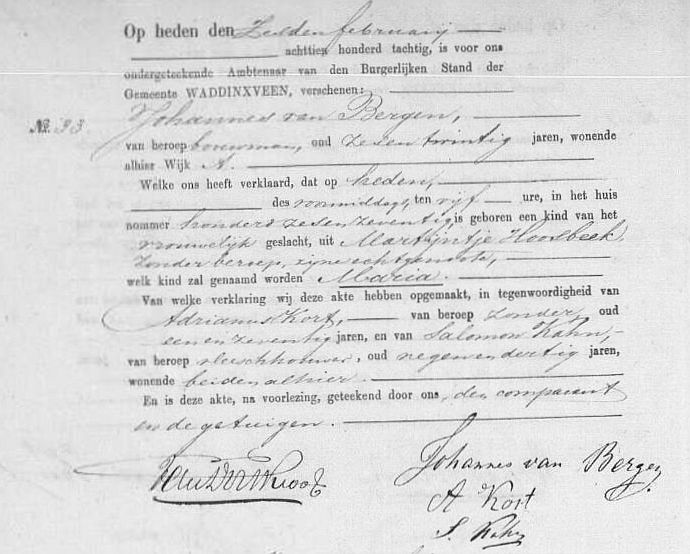 Op heden den Zesden februarij
achttien honderd tachtig, is voor ons
ondergeteekende Ambtenaar van den Burgerlijken Stand der
Gemeente WADDINXVEEN, verschenen:
No. 33 Johannes van Bergen,
van beroep bouwman, oud zesentwintig jaren, wonende
alhier Wijk A.
Welke ons heeft verklaard, dat op heden,
des voormiddags, ten vijf ure, in het huis
nommer honderd zesenzeventig, is geboren een kind van het
vrouwelijk geslacht, uit Martijntje Hoosbeek,
zonder beroep, zijne echtgenoote,
welk kind zal genaamd worden Maria.
Van welke verklaring wij deze akte hebben opgemaakt, in tegenwoordigheid van
Adrianus Kort, van beroep zonder, oud
eenenzeventig jaren, en van Salomon Kahn,
van beroep vleeschhouwer, oud negenendertig jaren,
wonende beiden alhier.
En is deze akte, na voorlezing, geteekend door ons, den comparant
en de getuigen.
Johannes van Bergen
A Kort
S. Kahn